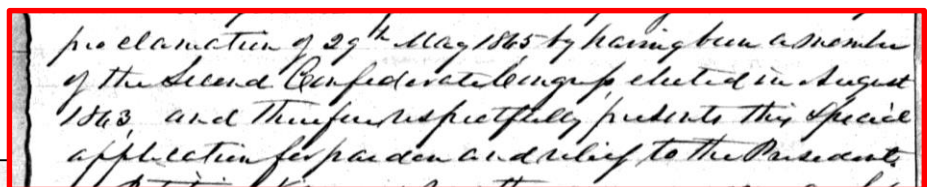 proclamation of 29th May 1865 by having been a member
of the Second Confederate Congress, elected in August
1863, and therefore respectfully presents this special
application for pardon and relief to the President.